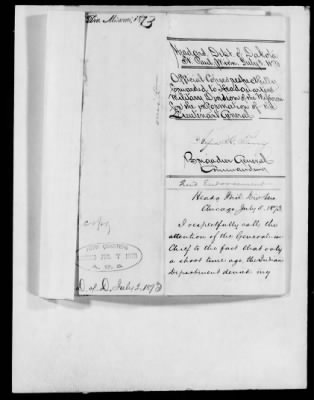 Head qrs Dept of Dakota
St Paul Minn July 3 1873
Official Copy respectfully
forwarded to Head quarters
Military Division of the Missouri
for the information of the
Lieutenant General
Brigadier General
Commanding
Endorsement
Hdqrs Mil. Div Mo
Chicago July 6. 1873.
I respectfully call the
attention of the General in
Chief to the fact that only
a short time ago the Indian
Department denied my
Missouri, 1873
copy
D. of D, July 3. 1873